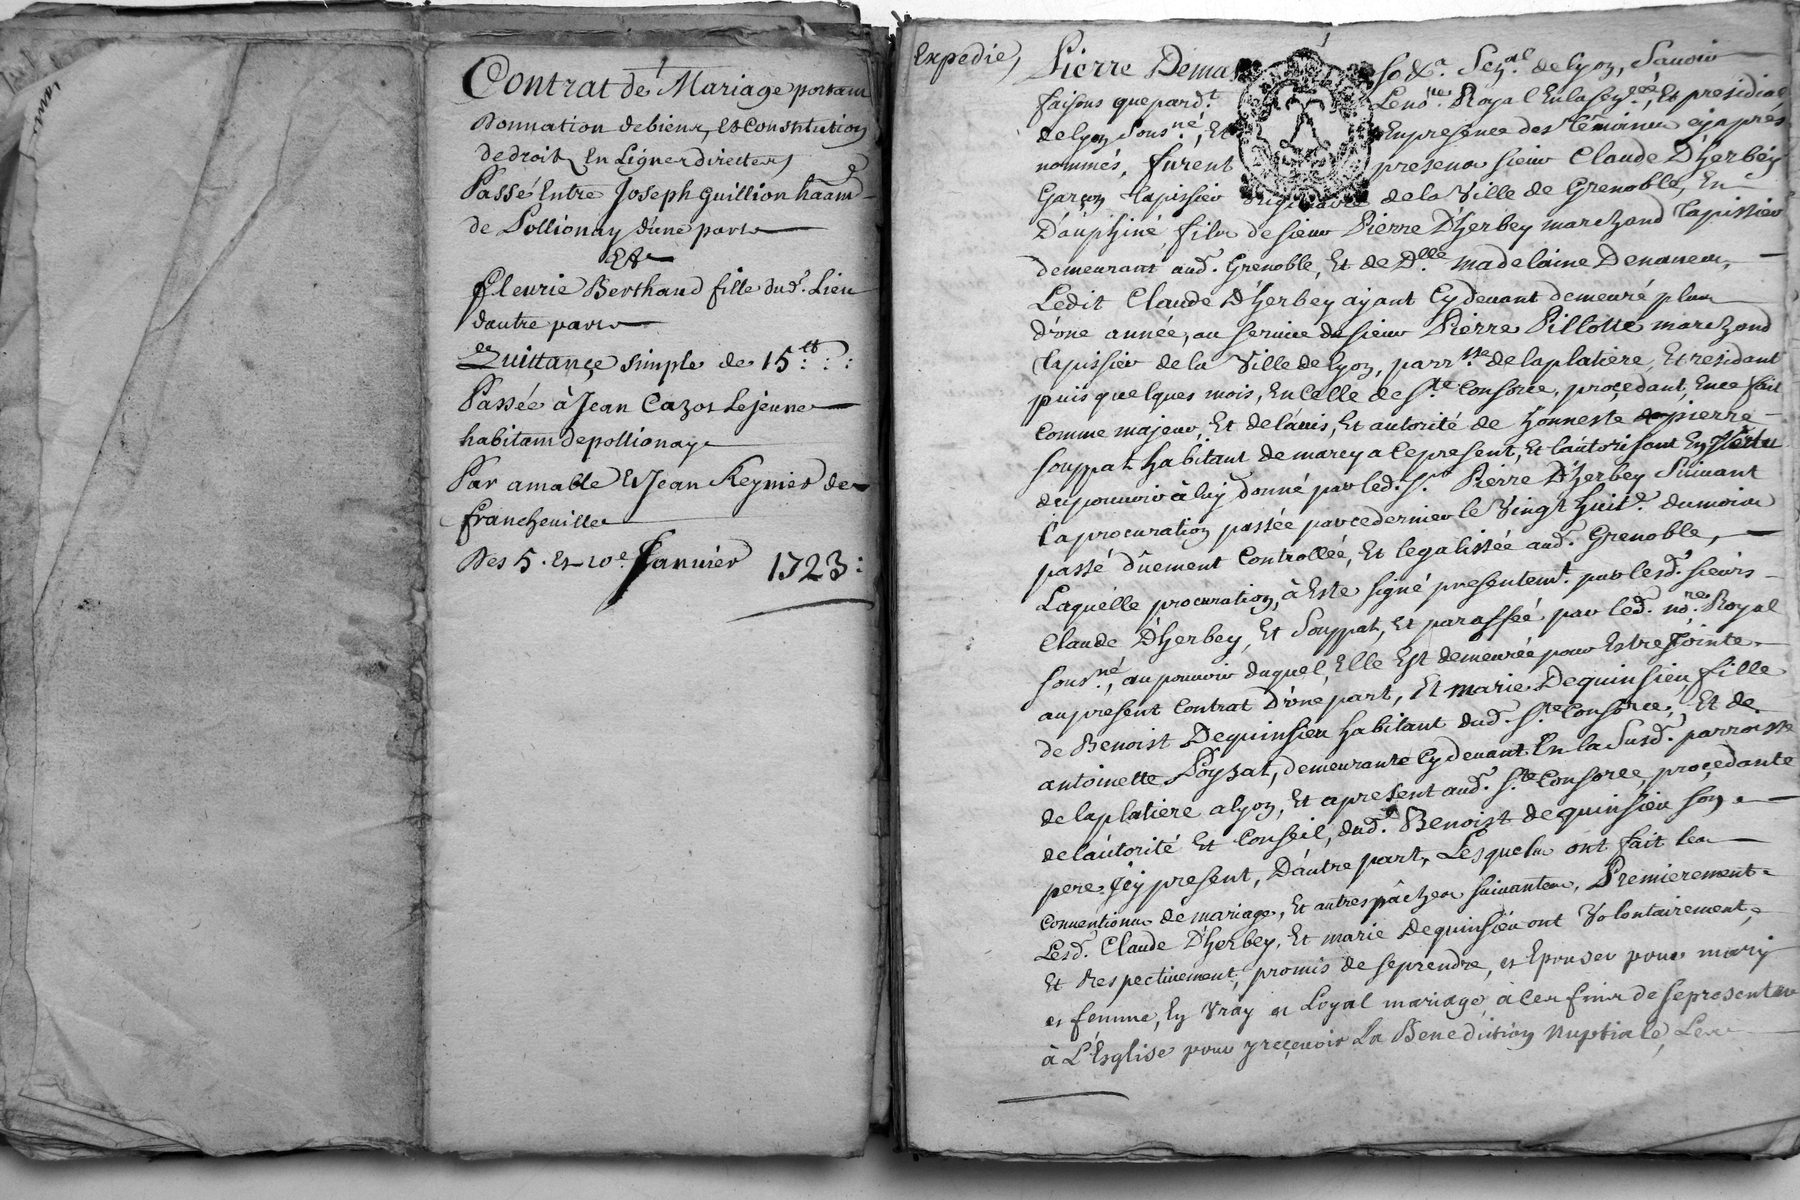 Contrat de Mariage portant
Donnation de biens, Et Constitution
de droits En Ligne directe,
Passé Entre Joseph Guillion haánt
de Pollionay d'une part
Et
fleurie Berthaud fille dud. Lieu
dautre part
Quittançe simple de 15 lt :
Passée à Jean Cazot Lejeune
habitant de pollionay
Par amable Et Jean Reynier de
francheville
Des 5. Et 10e. Janvier 1723 :
Expedié,
Pierre Demas so &a. Senal. de lyon, Scavoir
faisons que pardt. Le nore. Royal En la seneée, Et presidial
de lyon sousné, Et En presence des témoins cy après
nommés, furent presens sieur Claude D'herbéy
Garçon Tapissier originaire de la Ville de Grenoble, En
Dáuphiné fils de sieur Pierre D'herbey marchand Tapissier
demeurant aud. Grenoble, Et de Dlle. madelaine Denaneou,
Ledit Claude D'herbey ayant Cy devant demeuré plus
d'one année, au service de sieur Pierre Pillotte marchand
Tapissier de la Ville de lyon, parrsse. de la platiere, Et residant
puis quelques mois, En Celle de Ste. Consorce, proçedant En ce fait
Comme majeur, Et de l'auis, Et autorité de honneste pierre
souppat habitant de marcy a Ce present, Et l'autorisant En Vertu
du pouvoir à luy donné par led. Sr. Pierre D'herbey Suivant
la procuration passée par ce dernier le Vingt huite. du mois
passé dûement Controllée, Et legalissée aud. Grenoble,
Laquélle procuration, à Esté signé presentemt. par lesd. sieurs
Claude D'herbey, Et Souppat, Et paraffée par led. nore. Royal
sousné, au pouvoir duquel, Elle Est demeurée pour Estre Jointe
au present Contrat D'one part, Et marie Dequinsieu fille
de Benoist Dequinsieu habitant dud. Ste. Consorce, Et de
antoinette Poyzat, demeurante Cy devant En la Susd. parroisse
de la platiere a lyon, Et a present aud. Ste. Consorce, proçedante
de l'aútorité Et Conseil, dud. Benoist de quinsieu son
pere Jcy present, D'áutre part, Lesquels ont fait les
Conventions de mariage, Et autres pâches suivantes, Premierement
Lesd. Claude D'herbey, Et marie Dequinsieu ont Volontairement,
Et Respectivement, promis de se prendre, et Epouser pour mary
et femme, En Vray et Loyal mariage, à Ces fins de se presenter
à L'Esglise pour y reçevoir La Benediction Nuptiale, Les